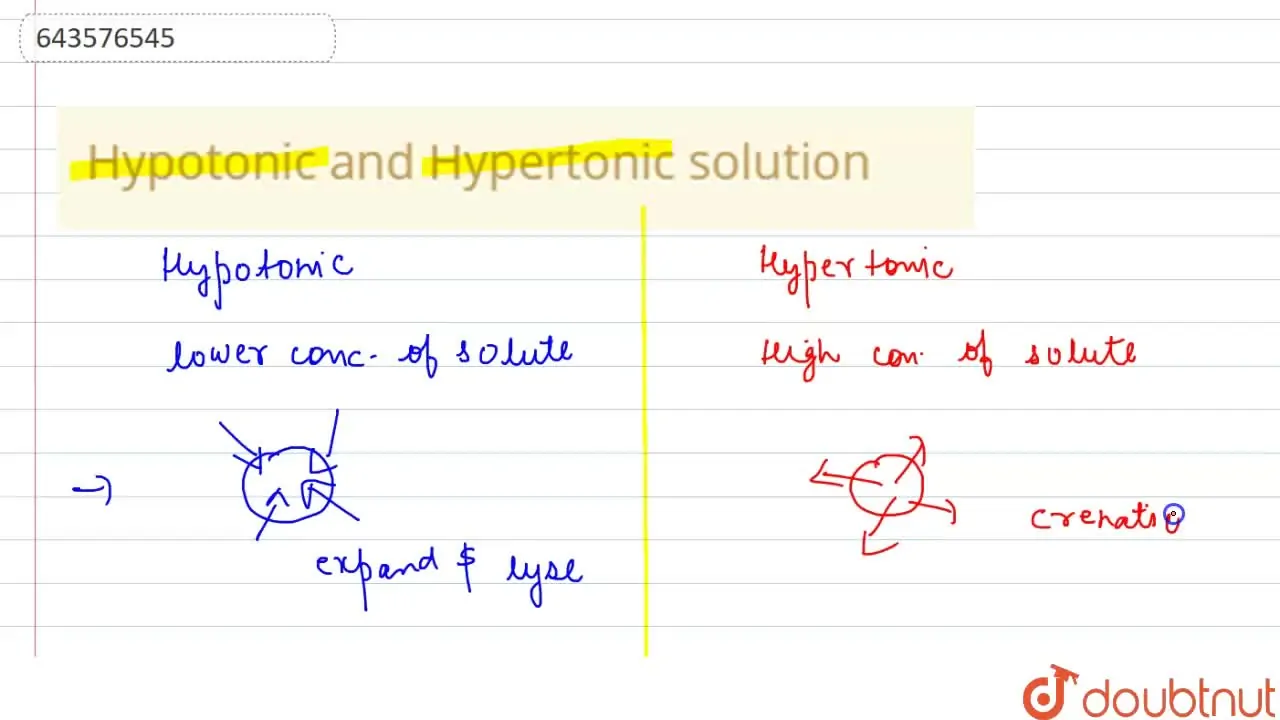 643576545
Hypotonic and Hypertonic solution
Hypotonic
lower conc. of solute
expand & lyse
Hypertonic
High con. of solute
crenatio
doubtnut